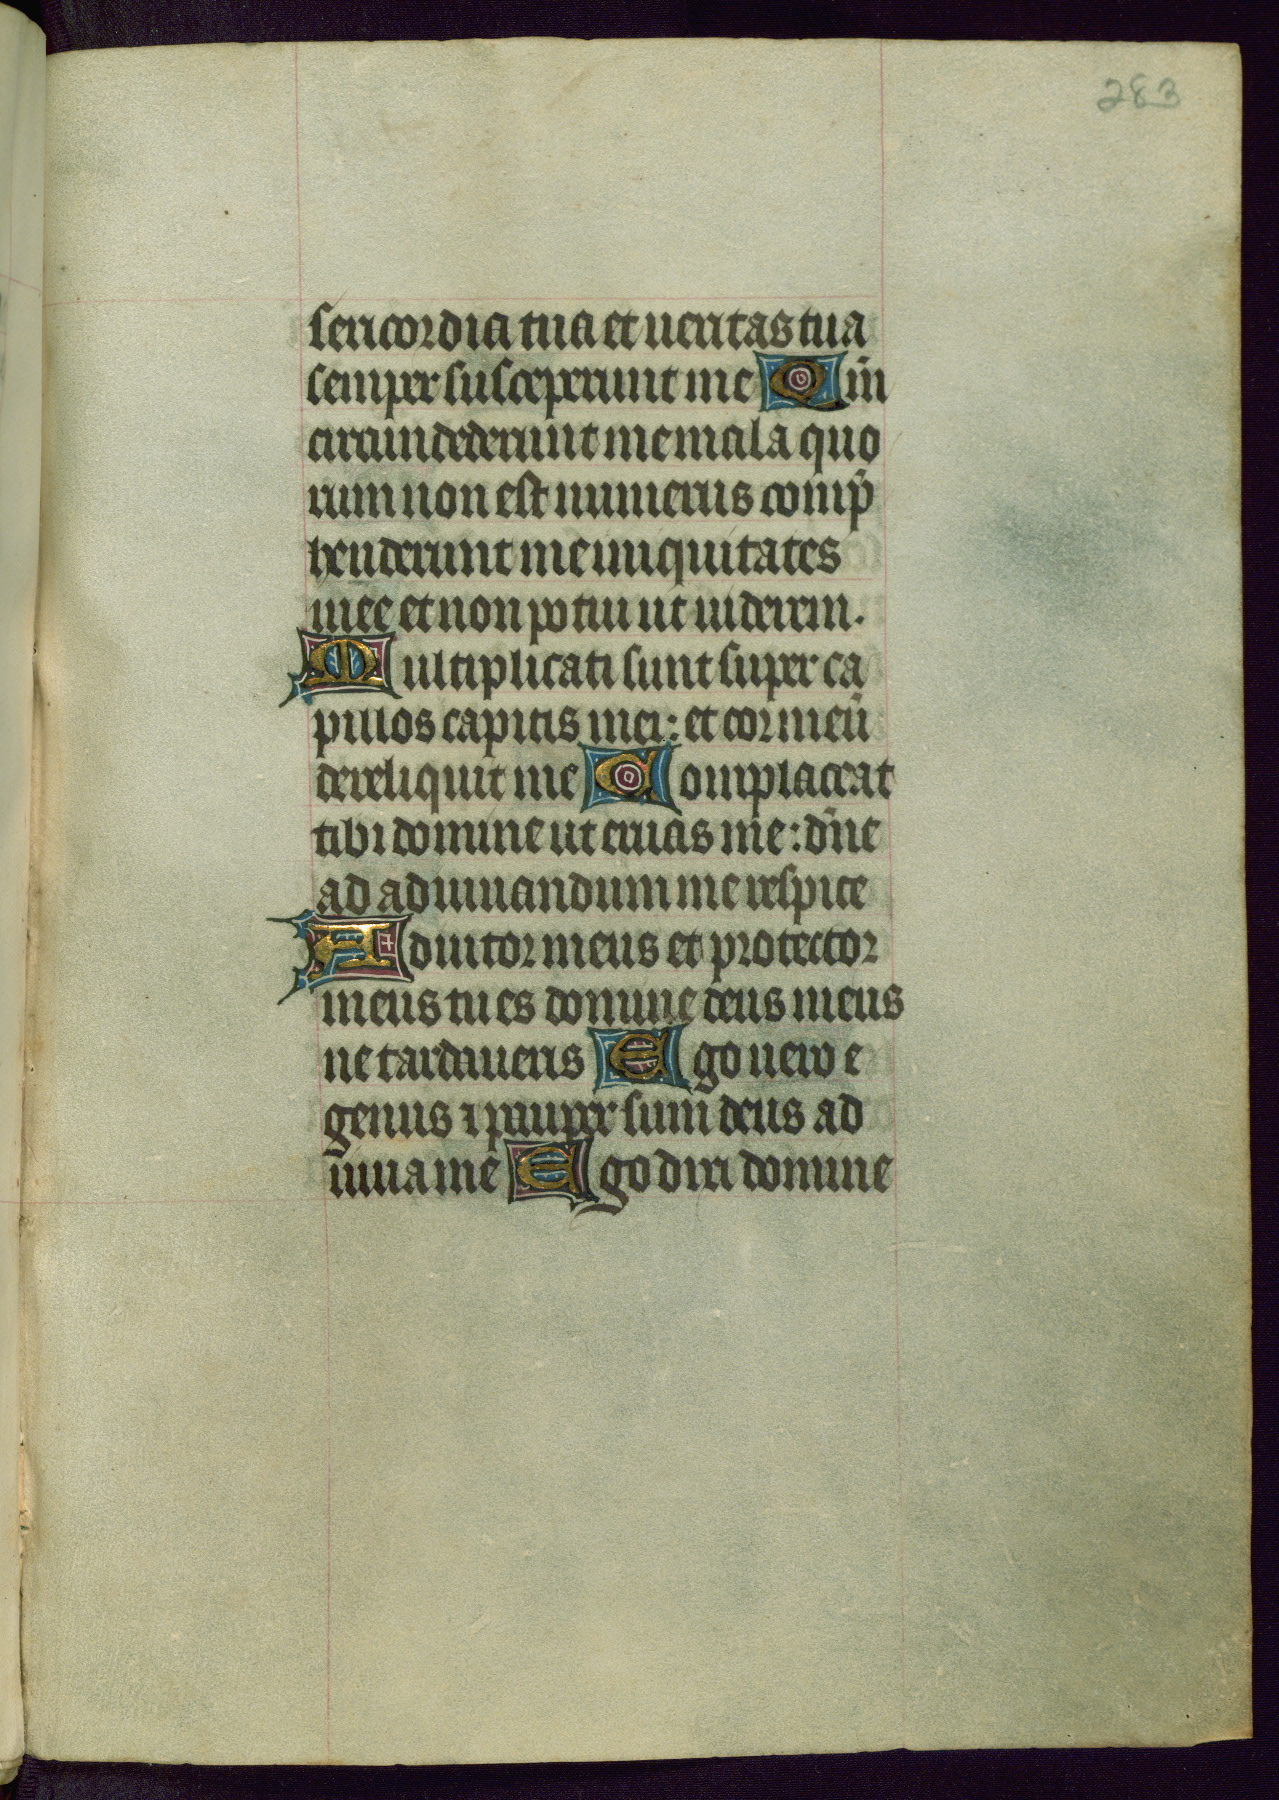 283
sericordia tua et ueritas tua
semper susceperunt me Qm̄
circumdederunt me mala quo
rum non est numerus comp̄
henderunt me iniquitates
mee et non potui ut uiderem.
Multiplicati sunt super ca
pillos capitis mei: et cor meū
dereliquit me Complaceat
tibi domine ut eruas me: dn̄e
ad adiuuandum me respice
Adiutor meus et protector
meus tu es domine deus meus
ne tardaueris Ego uero e
genus ⁊ pauper sum deus ad
iuua me Ego dixi domine